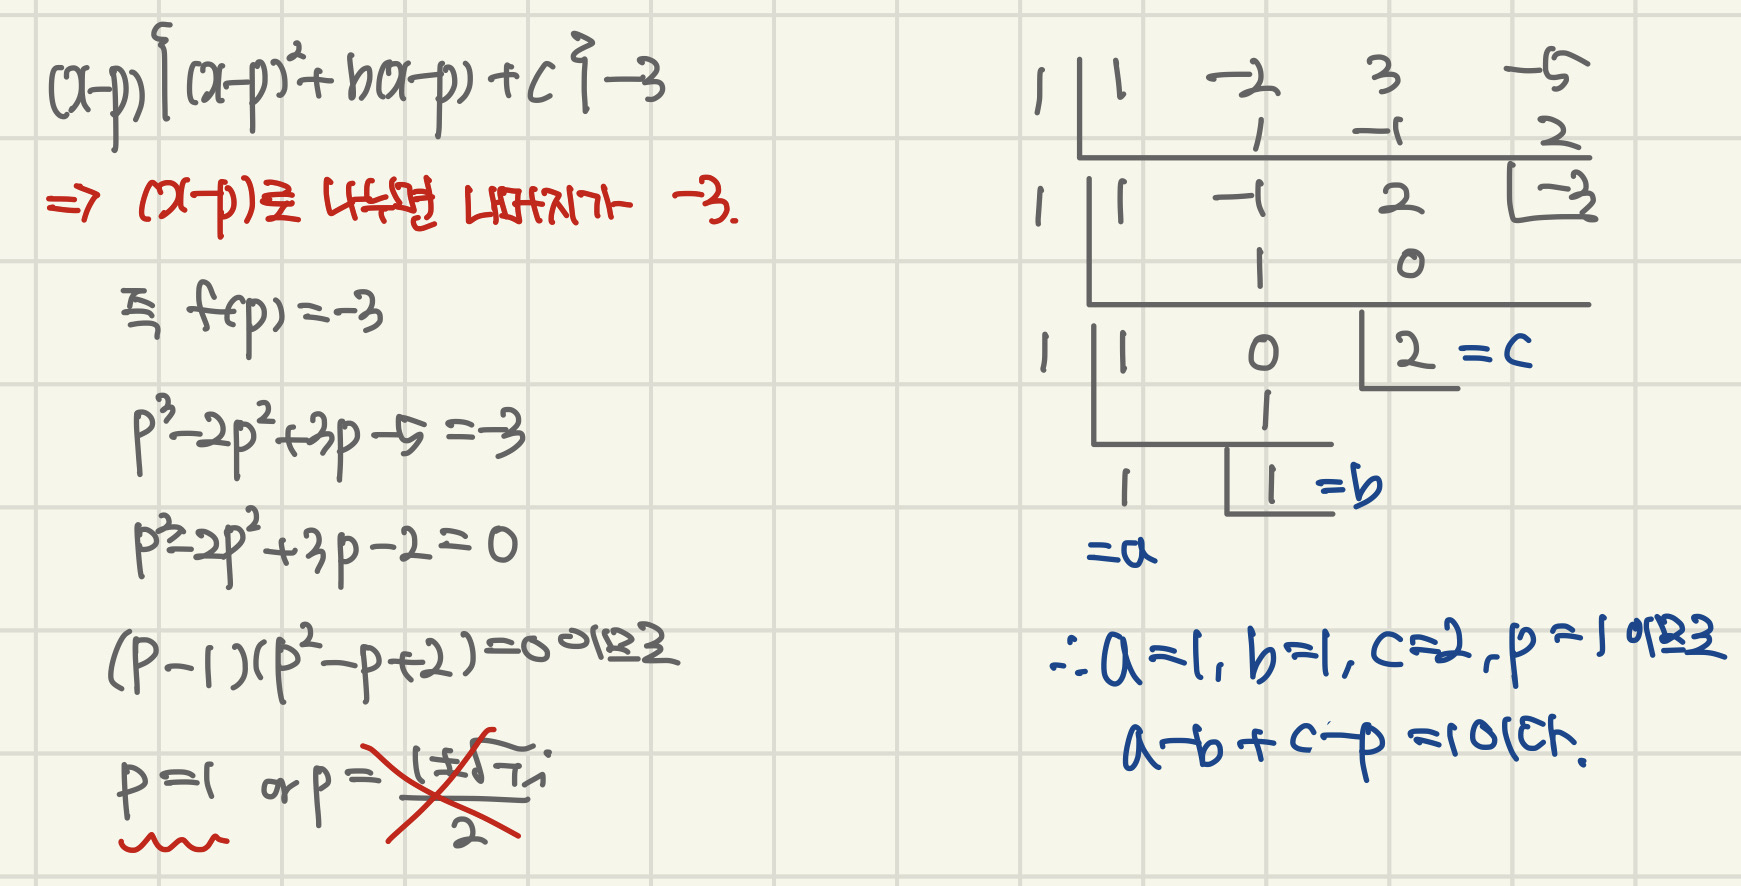 (x-p){(x-p)²+b(x-p)+c}-3
⇒ (x-p)로 나눴을 때 나머지가 -3.
즉 f(p)=-3
p³-2p²+3p-5=-3
p³-2p²+3p-2=0
(p-1)(p²-p+2)=0 이므로
p=1 or p=
2
1 1 -2 3 -5
1 -1 2
1 1 -1 2 -3
1 0
1 1 0 2 =c
1
1 1 =b
=a
∴a=1, b=1, c=2, p=1 이므로
a-b+c-p=1 이다.